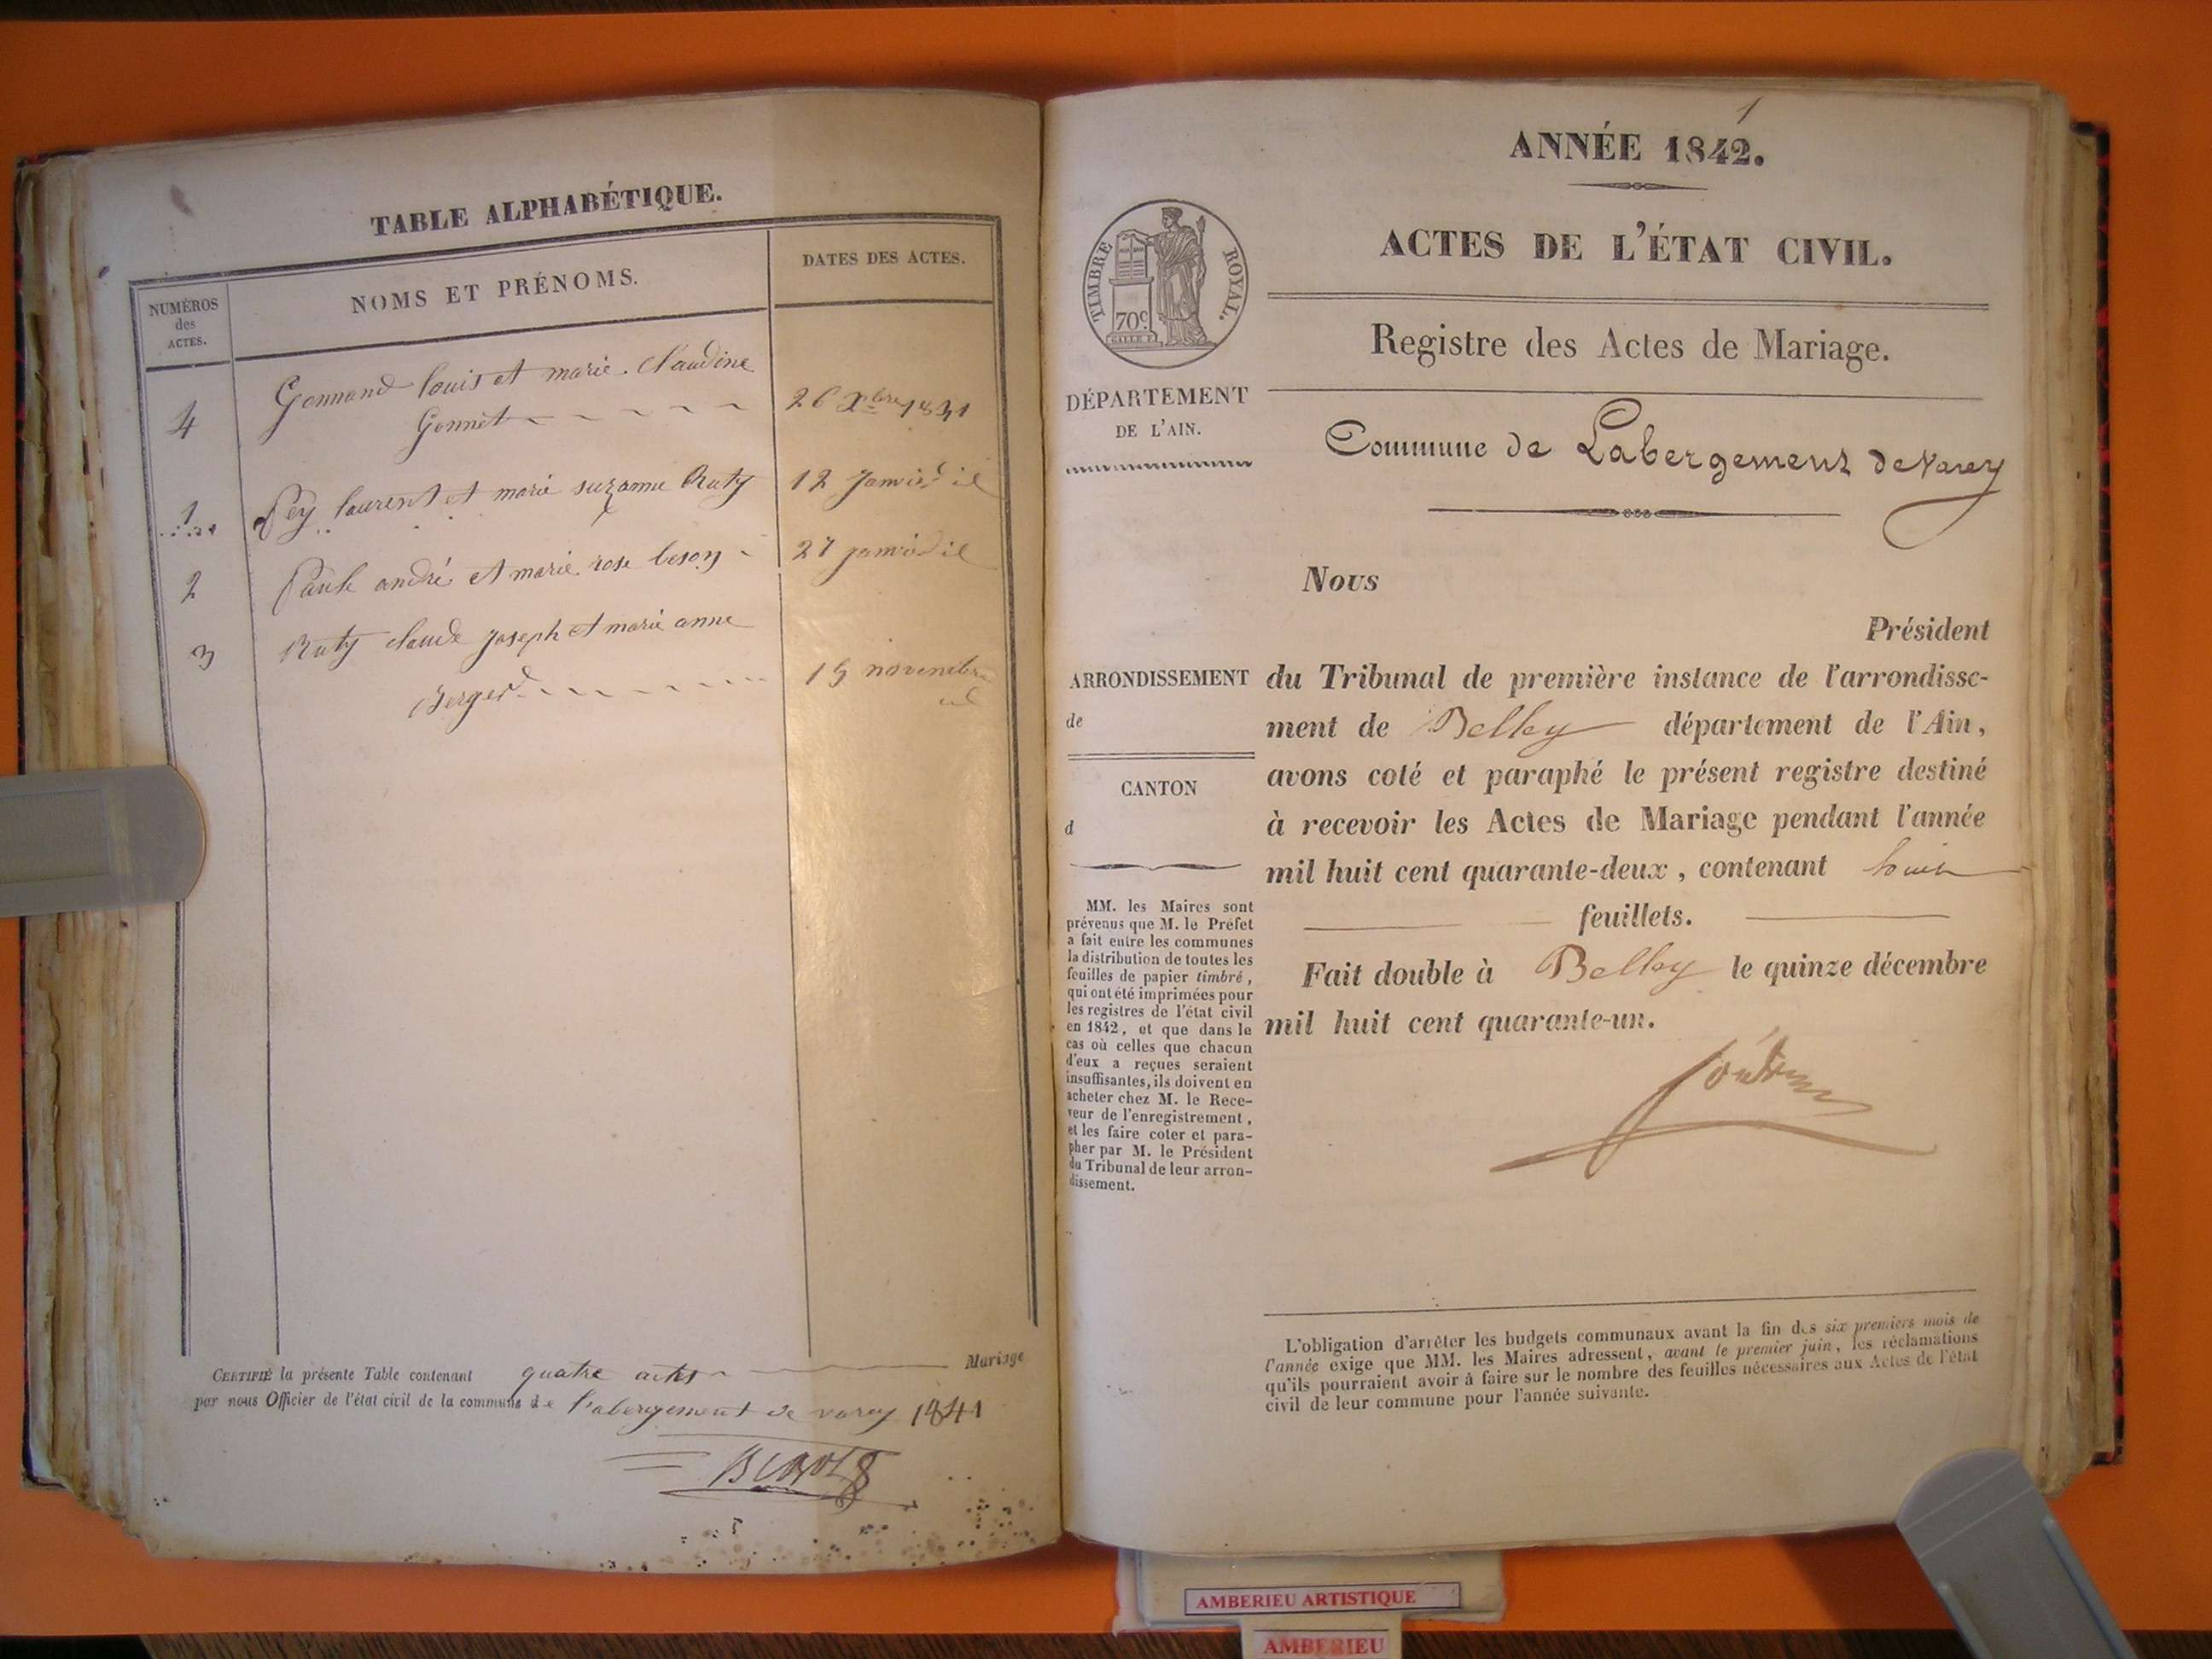 TABLE ALPHABÉTIQUE.
NUMÉROS
des
ACTES.
NOMS ET PRÉNOMS.
DATES DES ACTES.
4
Gonnand louis et marie. Claudine
Gonnet
26 Xbre 1841
1
Pey laurent et marie suzanne Ruty
12 Janvier
2
andré et marie rose
27
3
Ruty claude Joseph et marie anne
Berger
15 novembre
CERTIFIÉ la présente Table contenant quatre actes Mariage
par nous Officier de l'état civil de la commune de l'abergement de varey 1841
1
ANNÉE 1842.
ACTES DE L'ÉTAT CIVIL.
TIMBRE ROYAL.
70c.
Registre des Actes de Mariage.
DÉPARTEMENT
DE L'AIN.
Commune de Labergement de Varey
Nous
Président
ARRONDISSEMENT
de
CANTON
d
du Tribunal de première instance de l'arrondisse-
ment de Belley département de l'Ain,
avons coté et paraphé le présent registre destiné
à recevoir les Actes de Mariage pendant l'année
mil huit cent quarante-deux, contenant huit
feuillets.
Fait double à Belley le quinze décembre
mil huit cent quarante-un.
MM. les Maires sont
prévenus que M. le Préfet
a fait entre les communes
la distribution de toutes les
feuilles de papier timbré,
qui ont été imprimées pour
les registres de l'état civil
en 1842, et que dans le
cas où celles que chacun
d'eux a reçues seraient
insuffisantes, ils doivent en
acheter chez M. le Rece-
veur de l'enregistrement,
et les faire coter et para-
pher par M. le Président
du Tribunal de leur arron-
dissement.
L'obligation d'arrêter les budgets communaux avant la fin des six premiers mois de
l'année exige que MM. les Maires adressent, avant le premier juin, les réclamations
qu'ils pourraient avoir à faire sur le nombre des feuilles nécessaires aux Actes de l'état
civil de leur commune pour l'année suivante.
AMBERIEU ARTISTIQUE
AMBERIEU